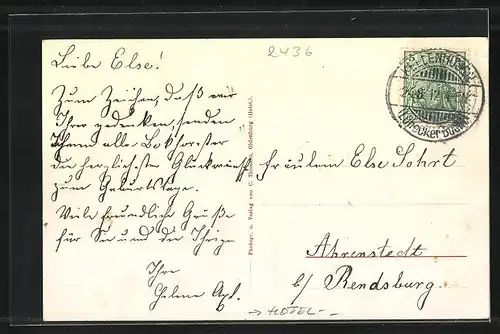 2436
Liebe Else!
Zum Zeichen, daß wir
Ihrer gedenken, senden
Ihnen alle
die herzlichsten Glückwünsche
zum Geburtstage.
Viele freundliche Grüße
für Sie und die Ihrigen
Ihre
Helene
Photogr. u. Verlag von C. Oldenburg (Holst.)
Fräulein Else Sohrt
Ahrenstedt
b/ Rendsburg.
→ HOTEL -